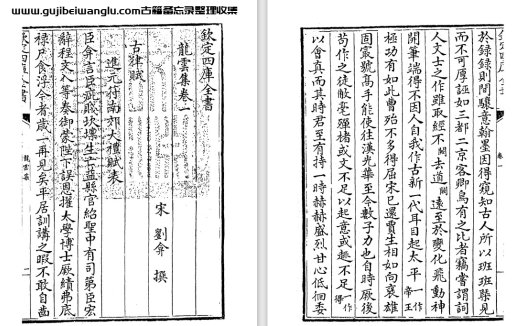 www.gujibeiwanglu.com古籍备忘录整理收集
欽定四庫全書
龍雲集卷一
宋 劉弇 撰
古律賦
進元符南郊大禮賦表
臣弇言臣竄跧坎壈生亡益縣官紹聖中有司第臣宏
辭程文入等奏御蒙陛下誤恩擢太學博士厥績弗底
祿尸食浮今者歲一再見矣平居訓講之暇不敢自齒
欽定四庫全書
龍雲集
卷一
於錄錄則間驟意翰墨因得窺知古人所以班班槩見
而不可厚誣如三都二京客卿烏有之比者竊嘗謂詞
人文士之作雖取經不同去道闊遠至於變化飛動神
開筆端得不因人自我作古新一代耳目起太平一作帝王
極功有如此曹殆不多得屈宋已還賈生相如向褒雄
固號高手能使往漢光華至今數子力也自時厥後
苟作之徒敝毫殫楮或文不足以起意或趣不足一作得
以會真而其時君至有持一時赫赫盛烈甘心低徊委